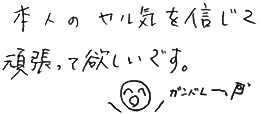 本人のヤル気を信じて
頑張って欲しいです。
ガンバレー